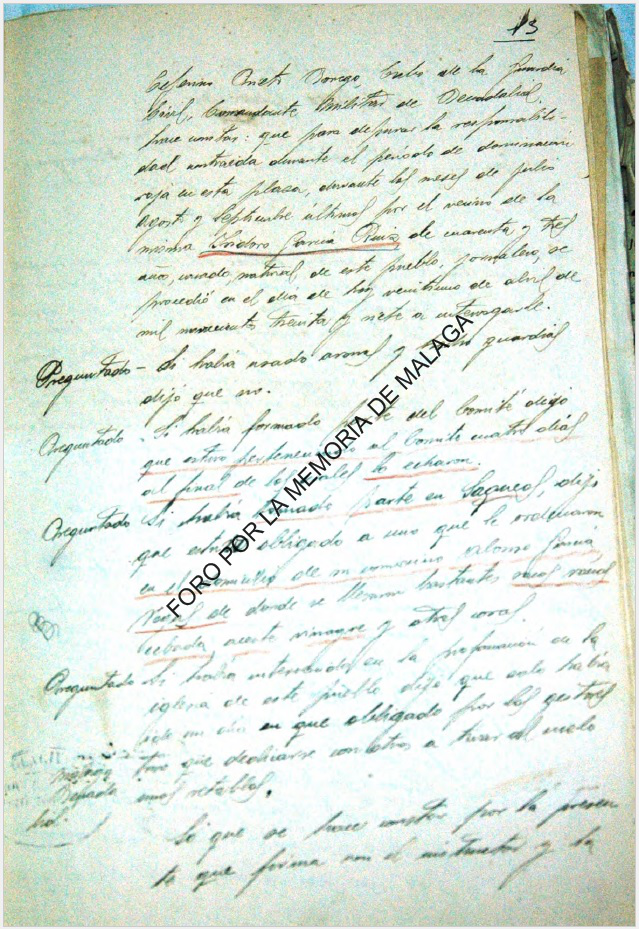 13
Ceferino Prieto Dorego, Cabo de la Guardia
Civil, Comandante Militar de Benadalid.
hace constar: que para depurar la responsabili-
dad contraida durante el periodo de dominacion
roja en esta plaza, durante los meses de julio
agosto y septiembre ultimos por el vecino de la
misma Isidoro Garcia Ruiz de cuarenta y tres
años, casado, natural de este pueblo, jornalero, se
procedió en el dia de hoy veintiuno de abril de
mil novecientos treinta y siete a interrogarle.
Preguntado - Si habia usado armas y guardias
dijó que no.
Preguntado - Si habia formado del Comité dijo
que estuvo al Comite cuatro dias
al final de los cuales lo echaron.
Preguntado Si habia tomado parte en saqueos, dijo
que obligado a uno que le ordenaron
en el domicilio de su convecino Alonso Garcia
de donde se llevaron bastantes
cebada, aceite vinagre y otras cosas.
Preguntado Si habia intervenido en la profanación de la
iglesia de este pueblo dijo que solo habia
sido un dia en que obligado por los gestores
tuvo que dedicarse con otros a tirar al suelo
unos retablos.
Lo que se hace constar por la presen-
te que firma con el instructor y la
FORO POR LA MEMORIA DE MALAGA